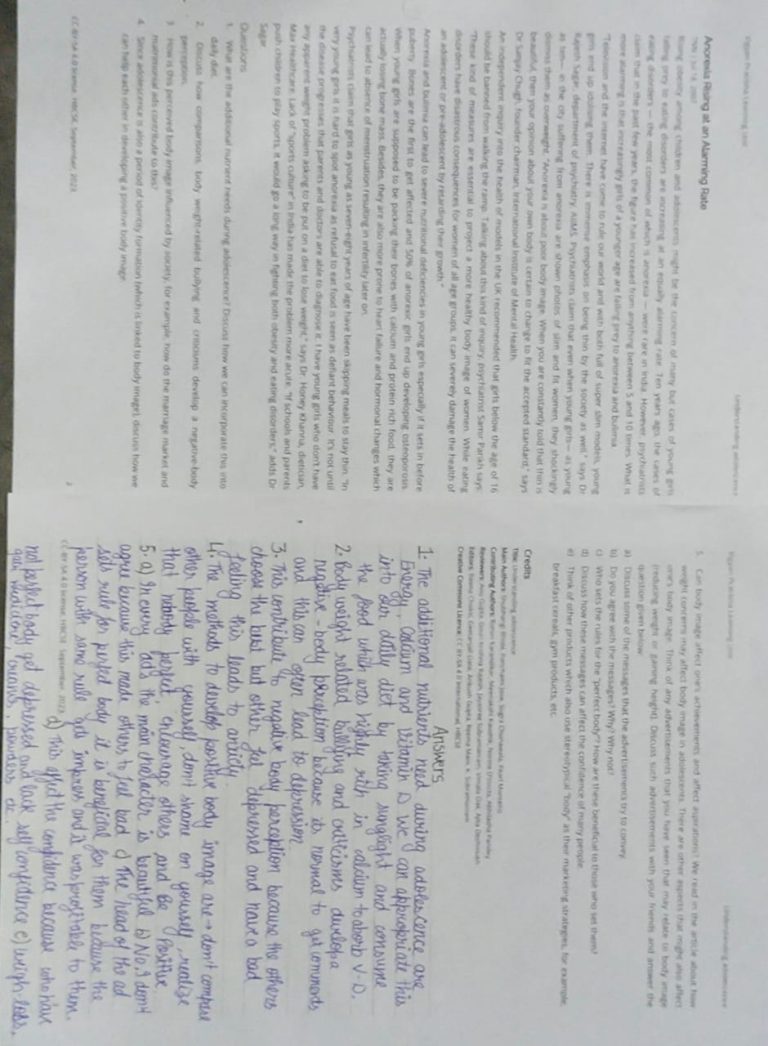 Vigyan Pratibha Learning Unit
Understanding adolescence
Anorexia Rising at an Alarming Rate
Rising obesity among children and adolescents might be the concern of many but cases of young girls
falling prey to eating disorders are increasing at an equally alarming rate. Ten years ago, the cases of
eating disorders — the most common of which is anorexia — were rare in India. However, psychiatrists
claim that in the past few years, the figure has increased from anything between 5 and 10 times. What is
more alarming is that increasingly girls of a younger age are falling prey to anorexia and bulimia.
"Television and the internet have come to rule our world and with both full of super slim models, young
girls end up idolising them. There is immense emphasis on being thin by the society as well," says Dr
Rajesh Sagar, department of psychiatry, AIIMS. Psychiatrists claim that even when young girls — as young
as ten — in the city suffering from anorexia are shown photos of slim and fit women, they shockingly
dismiss them as overweight. "Anorexia is about poor body image. When you are constantly told that thin is
beautiful, then your opinion about your own body is certain to change to fit the accepted standard," says
Dr Sanjay Chugh, founder chairman, International Institute of Mental Health.
An independent inquiry into the health of models in the UK recommended that girls below the age of 16
should be banned from walking the ramp. Talking about this kind of inquiry, psychiatrist Samir Parikh says:
"These kind of measures are essential to project a more healthy body image of women. While eating
disorders have disastrous consequences for women of all age groups, it can severely damage the health of
an adolescent or pre-adolescent by retarding their growth."
Anorexia and bulimia can lead to severe nutritional deficiencies in young girls especially if it sets in before
puberty. Bones are the first to get affected and 50% of anorexic girls end up developing osteoporosis.
When young girls are supposed to be packing their bones with calcium and protein rich food, they are
actually losing bone mass. Besides, they are also more prone to heart failure and hormonal changes which
can lead to absence of menstruation resulting in infertility later on.
Psychiatrists claim that girls as young as seven-eight years of age have been skipping meals to stay thin. "In
very young girls it is hard to spot anorexia as refusal to eat food is seen as defiant behaviour. It's not until
the disease progresses that parents and doctors are able to diagnose it. I have young girls who don't have
any apparent weight problem asking to be put on a diet to lose weight," says Dr. Honey Khanna, dietician,
Max Healthcare. Lack of "sports culture" in India has made the problem more acute. "If schools and parents
push children to play sports, it would go a long way in fighting both obesity and eating disorders," adds Dr
Sagar.
Questions
1. What are the additional nutrient needs during adolescence? Discuss how we can incorporate this into
daily diet.
2. Discuss how comparisons, body weight-related bullying and criticisms develop a negative-body
perception.
3. How is this perceived body image influenced by society, for example, how do the marriage market and
matrimonial ads contribute to this?
4. Since adolescence is also a period of identity formation (which is linked to body image), discuss how we
can help each other in developing a positive body image.
CC BY-SA 4.0 license, HBCSE, September, 2023
2
Vigyan Pratibha Learning Unit
Understanding adolescence
5. Can body image affect one's achievements and affect aspirations? We read in the article about how
weight concerns may affect body image in adolescents. There are other aspects that might also affect
one's body image. Think of any advertisements that you have seen that may relate to body image
(reducing weight or gaining height). Discuss such advertisements with your friends and answer the
question given below:
a) Discuss some of the messages that the advertisements try to convey.
b) Do you agree with the messages? Why? Why not?
c) Who sets the rules for the "perfect body"? How are these beneficial to those who set them?
d) Discuss how these messages can affect the confidence of many people.
e) Think of other products which also use stereotypical 'body' as their marketing strategies, for example,
breakfast cereals, gym products, etc.
Credits
Title: Understanding adolescence
Creative Commons Licence: CC BY-SA 4.0 International, HBCSE
Answers
1. The additional nutrients need during adolescence are
Energy, Calcium and Vitamin D. We can appropriate this
into our daily diet by taking sunglight and consume
the food which was highly rich in calcium to aborb V-D.
2. Body weight related bullying and criticismes develop a
negative-body perception because its normal to get comments
and this can often lead to depression.
3. This contribute to negative body perception because the others
choose the best but other feel depressed and have a bad
feeling this leads to anxiety.
4. The methods to develop positive body image are → don't compare
other people with yourself, don't shame on yourself, realize
that nobody perfect, encourage others and Be Positive
5. a) In every ad's the main character is beautiful b) No, I don't
agree because this made others to feel bad c) The head of the ad
sets rule for perfect body it is beneficial for them because the
person with same rule get impress and it was profitable to them.
d) This effect the confidence because who have
CC BY-SA 4.0 license, HBCSE, September, 2023
not perfect body get depressed and lack self confidence e) weigh loss,
creams, powders etc.